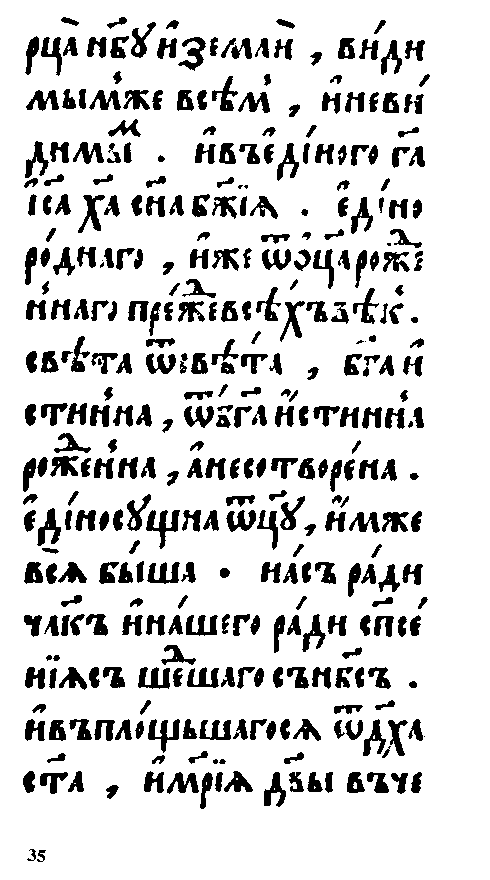 рца̀ нб҃ꙋ и҆ земли̑ , ви́ди
мы́мже всѣ́м , и҆ неви́
димы̑м . и҆ въ є҆ді́ного г҃а
і҆с҃а х҃а сн҃а бж҃їѧ . є҆ді́но
ро́днаго , и҆же ѿ ѻ҆ц҃а роже
н́наго пре́же всѣ́хъ вѣ́к .
свѣта ѿ свѣ́та , бг҃а и
стинна , ѿ бг҃а и҆стинна
роже́нна , а҆ несотворе́на .
є҆ді́носꙋщна ѻц҃ꙋ , и҆мже
всѧ̑ бы́ша . на́съ ра́ди
чл҃къ и҆ на́шего ра́ди сп҃се́
нїѧ съшешаго съ нб҃съ .
и҆ въпло́щьшагосѧ ѿ дх҃а
ст҃а , и҆ мр҃їѧ дв҃ы въче
35